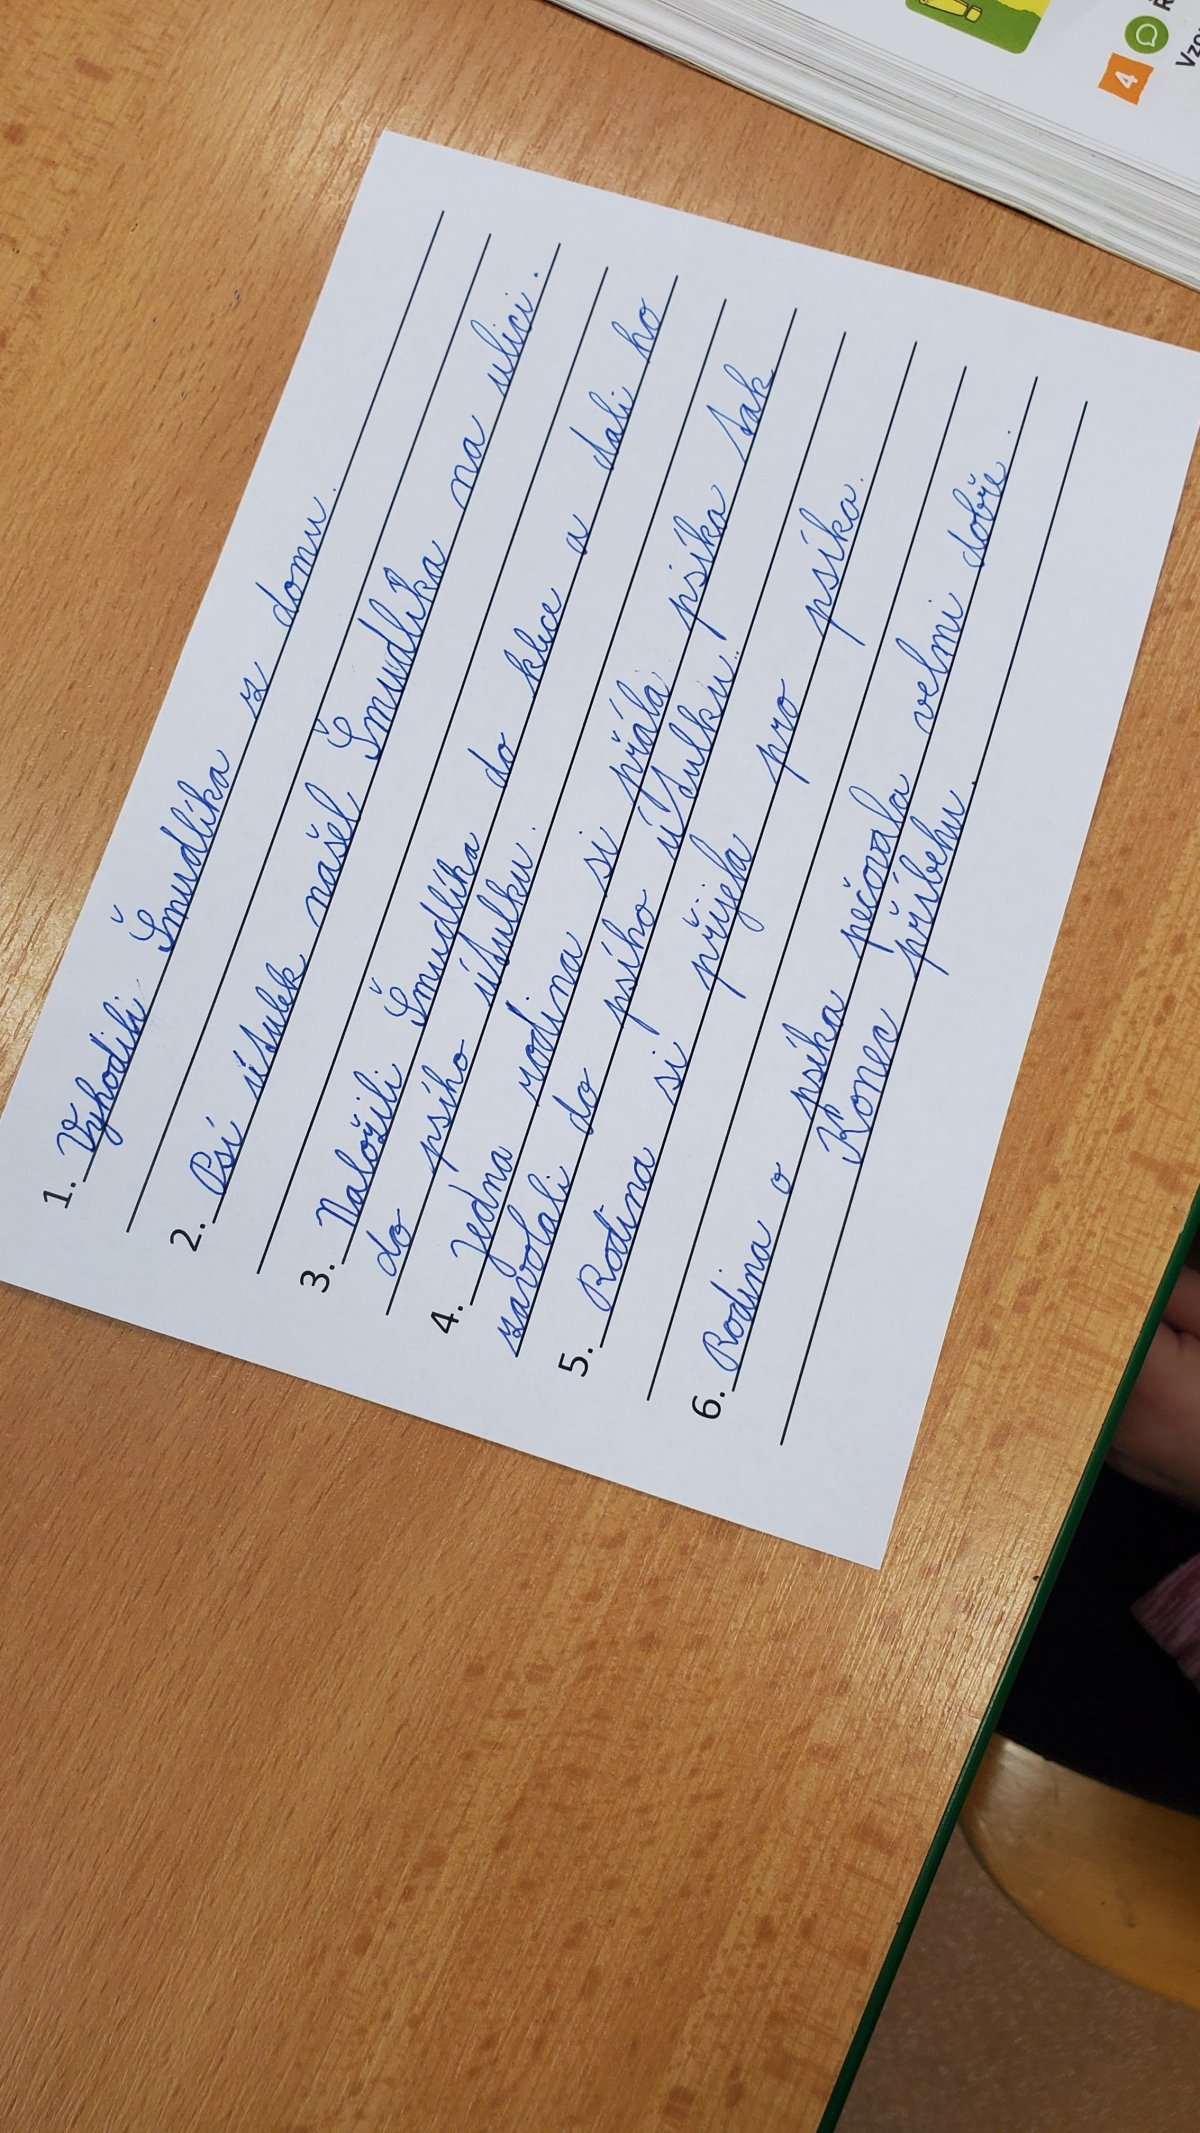 1. Vyhodili Šmudlíka z domu.
2. Psí útulek našel Šmudlíka na ulici.
3. Naložili Šmudlíka do klece a dali ho
do psího útulku.
4. Jedna rodina si přála psíka tak
zavolali do psího útulku.
5. Rodina si přijela pro psíka.
6. Rodina o psíka pečovala velmi dobře.
Konec příběhu.
4